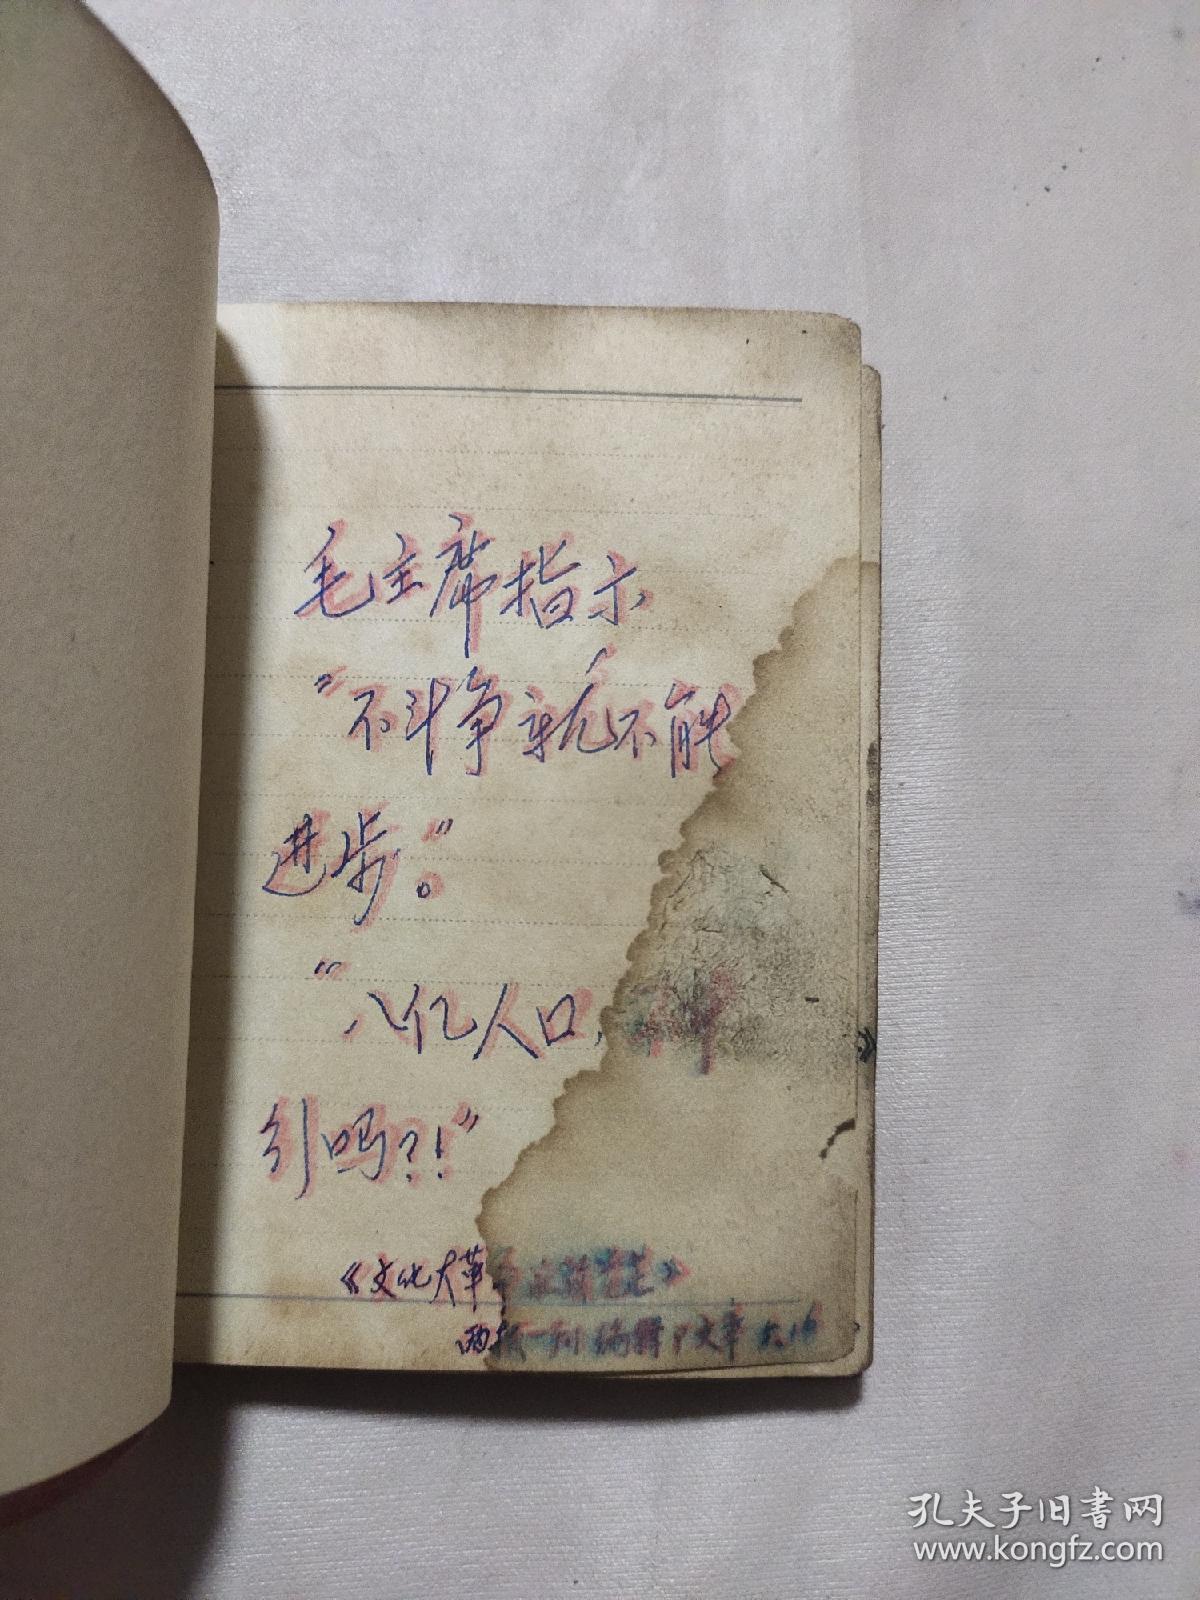 毛主席指示
“不斗争就不能
进步。”
“八亿人口，不斗
行吗?!”
《文化大革命永放光芒》
两报一刊编辑部文章 5.16
孔夫子旧书网
www.kongfz.com